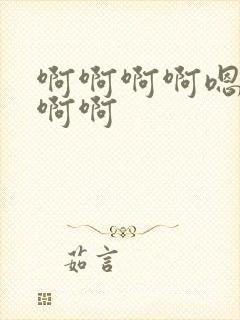 啊啊啊啊嗯
啊啊
茹言